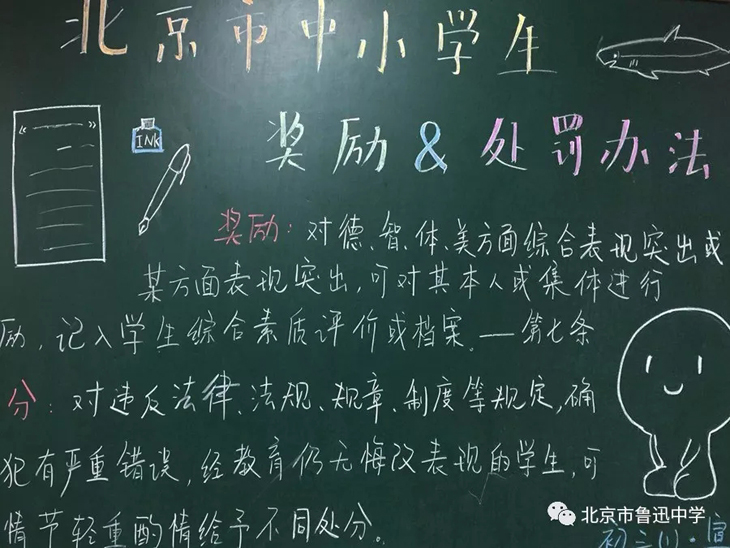 北京市中小学生
INK
奖励&处罚办法
奖励:对德、智、体、美方面综合表现突出或
某方面表现突出,可对其本人或集体进行
励,记入学生综合素质评价或档案。—第七条
分:对违反法律、法规、规章、制度等规定,确
犯有严重错误,经教育仍无悔改表现的学生,可
情节轻重酌情给予不同处分。
北京市鲁迅中学